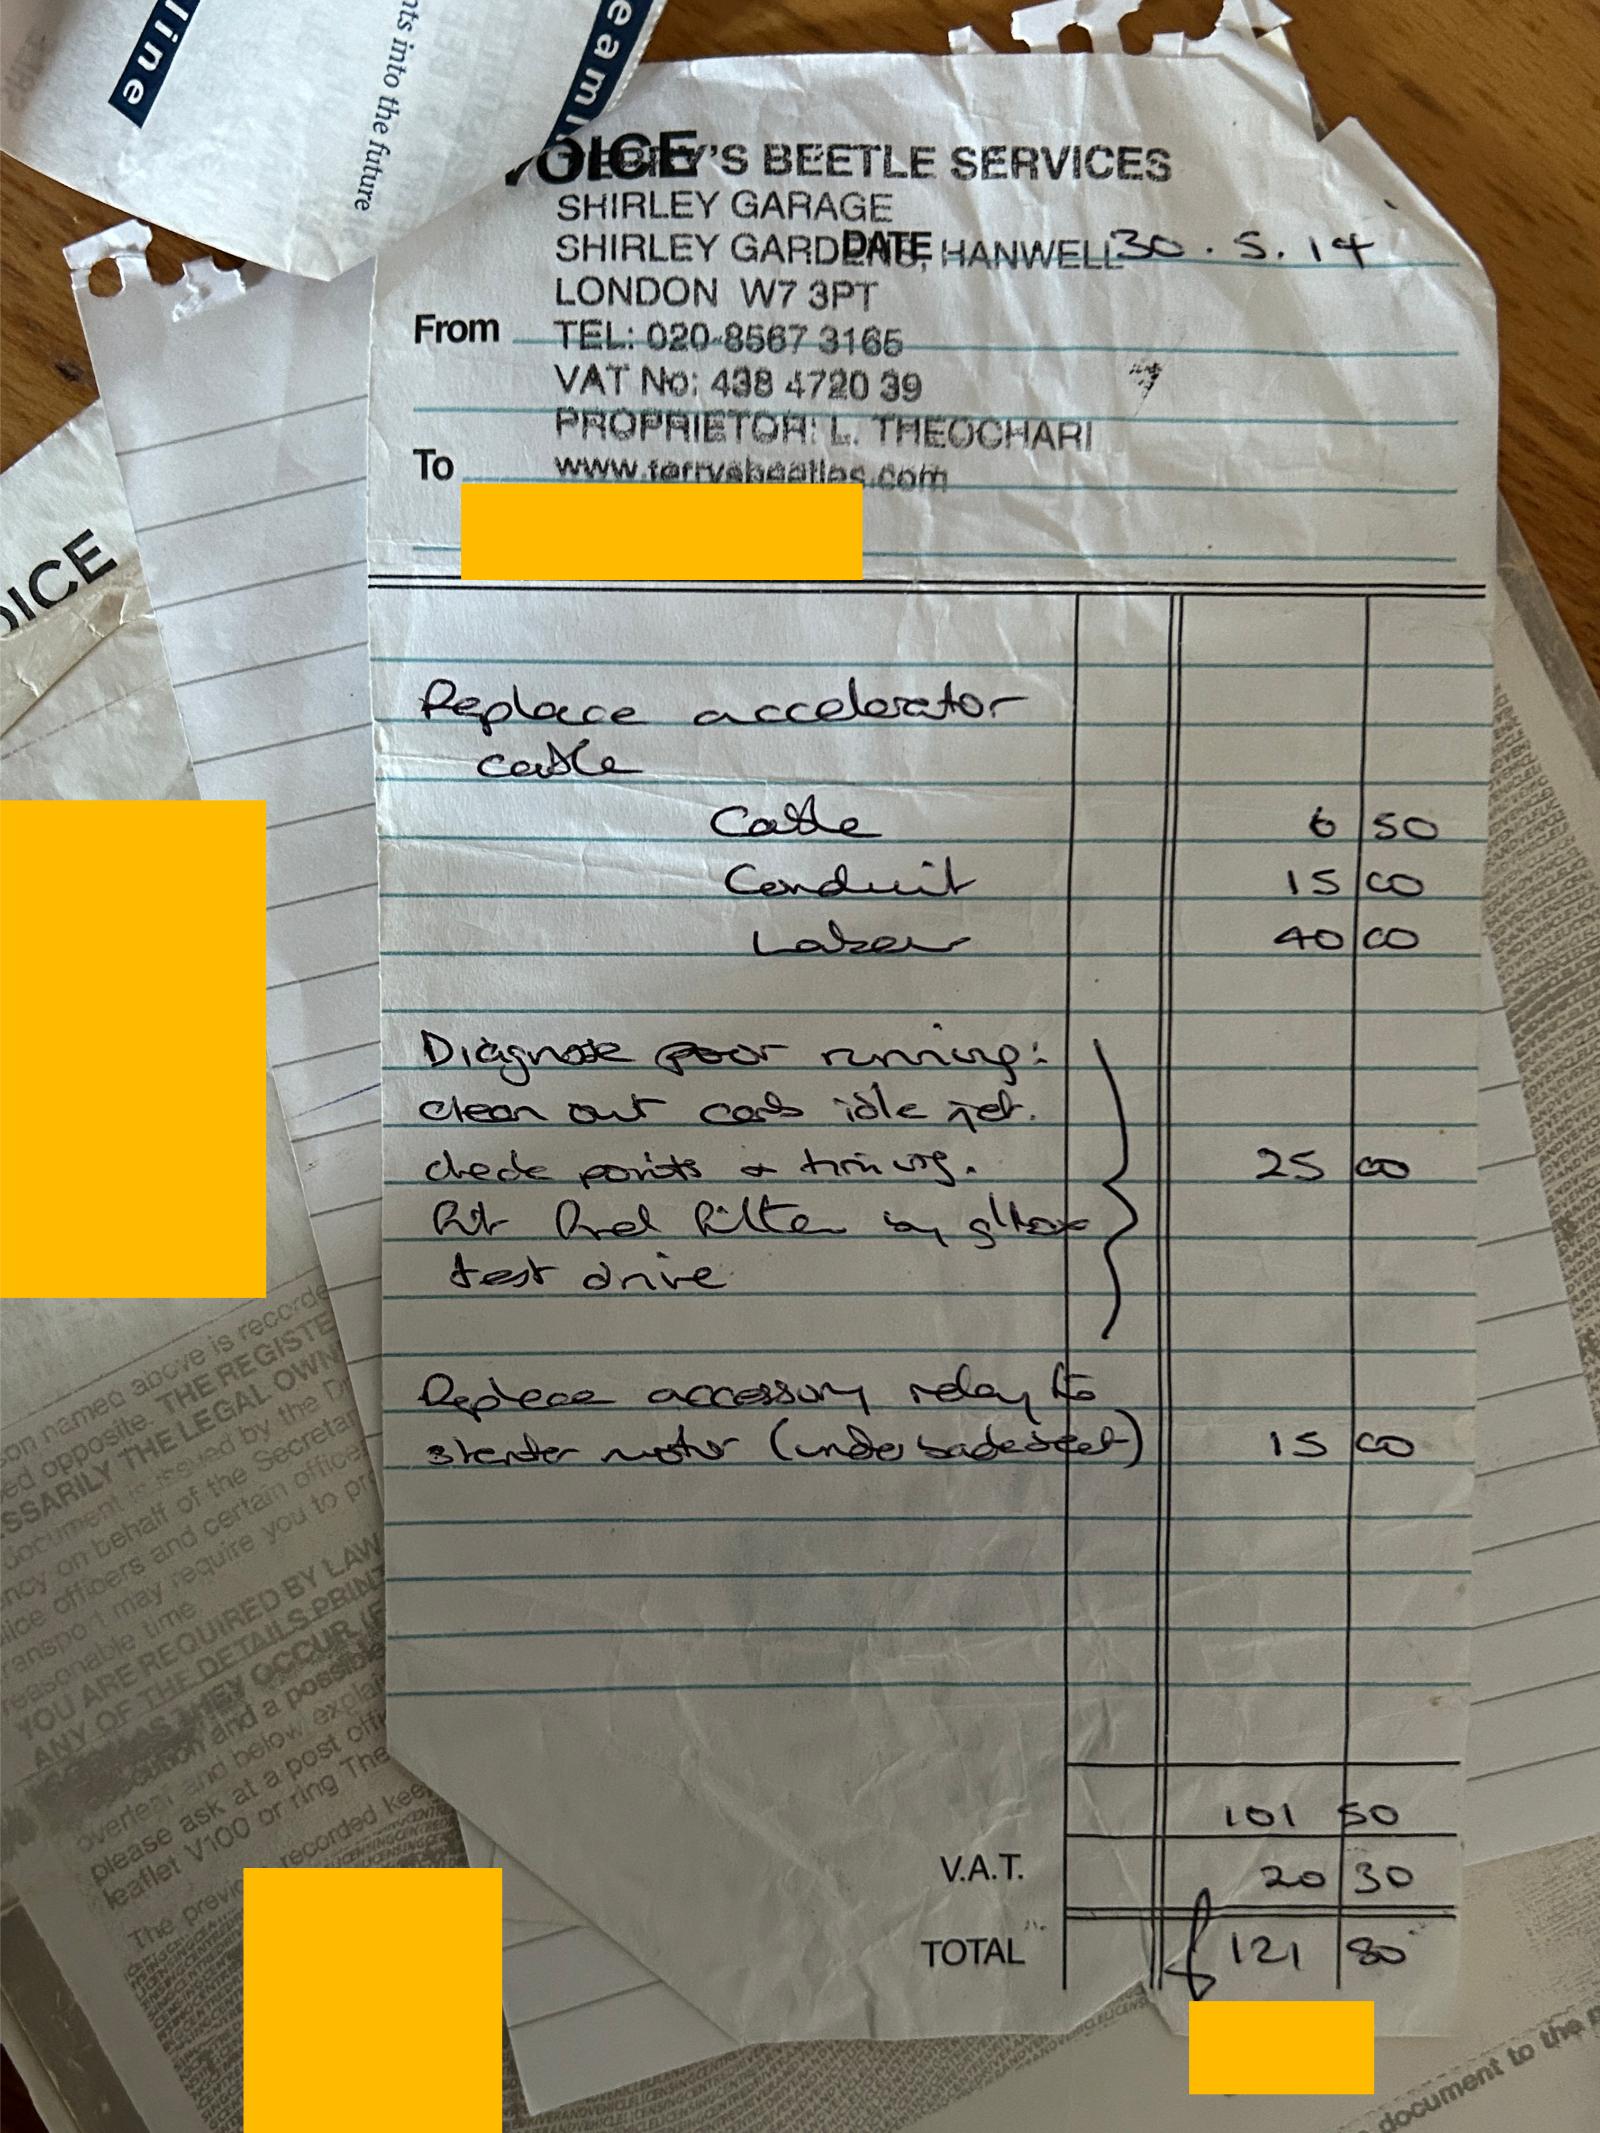 line
nts into the future
eaml
OICE
'S BEETLE SERVICES
SHIRLEY GARAGE
SHIRLEY GARDENS, HANWELL
DATE 30.5.14
LONDON W7 3PT
From
TEL: 020-8567 3165
VAT No: 438 4720 39
PROPRIETOR: L. THEOCHARI
To
www.terrysbeetles.com
OICE
Replace accelerator
cable
Cable 6 50
Conduit 15 00
Labour 40 00
Diagnose poor running:
clean out carb idle jet.
check points & timing. 25 00
Fit fuel filter by g'box
test drive
Replace accessory relay to
starter motor (under backseat) 15 00
101 50
V.A.T. 20 30
TOTAL £ 121 80
son named above is recorde
ed opposite. THE REGISTE
SSARILY THE LEGAL OWN
document is issued by the D
ncy on behalf of the Secretar
lice officers and certain officer
ransport may require you to pr
reasonable time
YOU ARE REQUIRED BY LAW
ANY OF THE DETAILS PRINT
AS THEY OCCUR
and a possible
overleaf and below explai
please ask at a post offi
leaflet V100 or ring The
recorded kee
The previo
document to the p